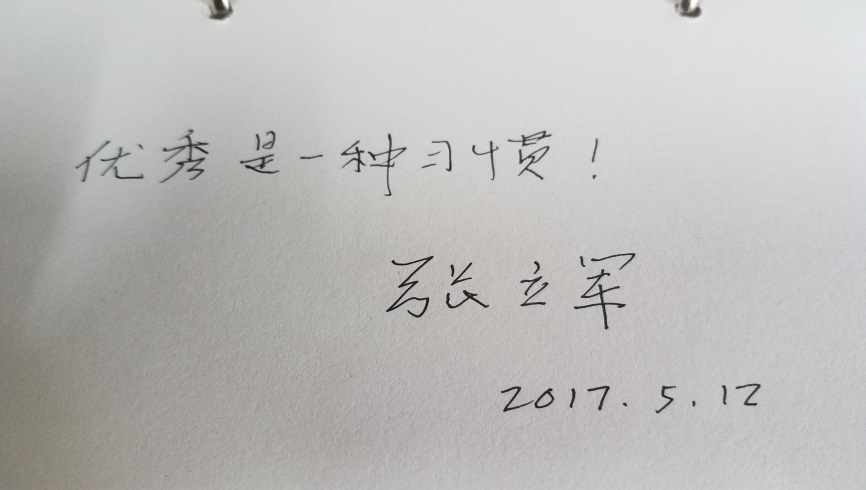 优秀是一种习惯！
张立军
2017.5.12